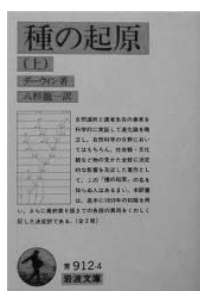 種の起原
(上)
ダーウィン著
八杉龍一訳
自然選択と適者生存の事実を
科学的に実証して進化論を確
立し，自然科学の分野におい
てはもちろん，社会観・文化
観など物の見かた全般に決定
的な影響を及ぼした著作とし
て，この「種の起原」の名を
知らぬ人はあるまい．本訳書
は，底本に1859年の初版を用
い，さらに最終第6版までの各版の異同をくわしく
記した決定訳である．(全2冊)
青912-4
岩波文庫